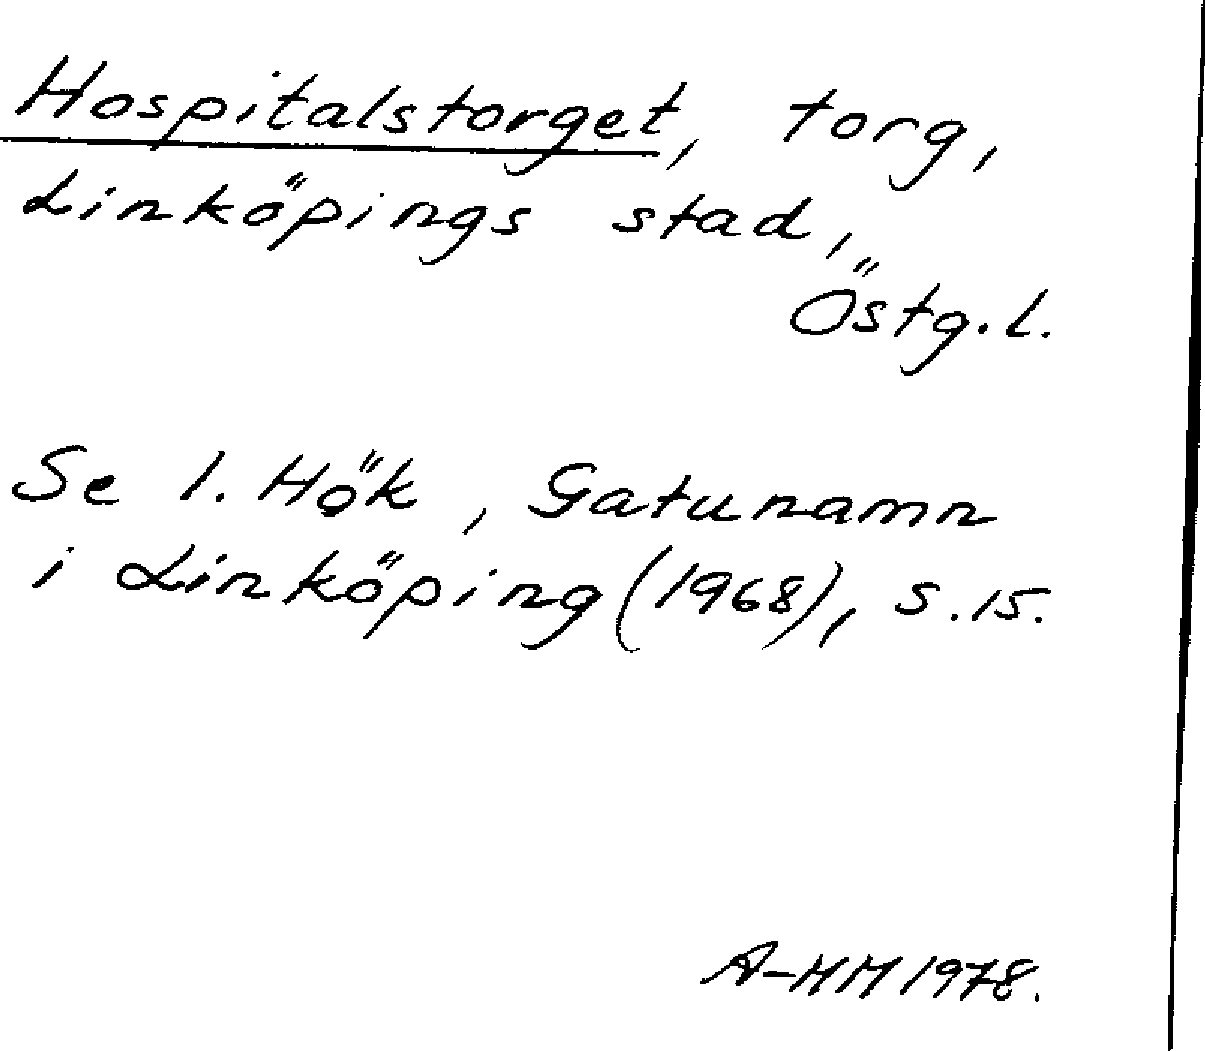 Hospitalstorget, torg,
Linköpings stad,
Östg.l.
Se I. Hök, Gatunamn
i Linköping (1968), s. 15.
A-MH 1978.